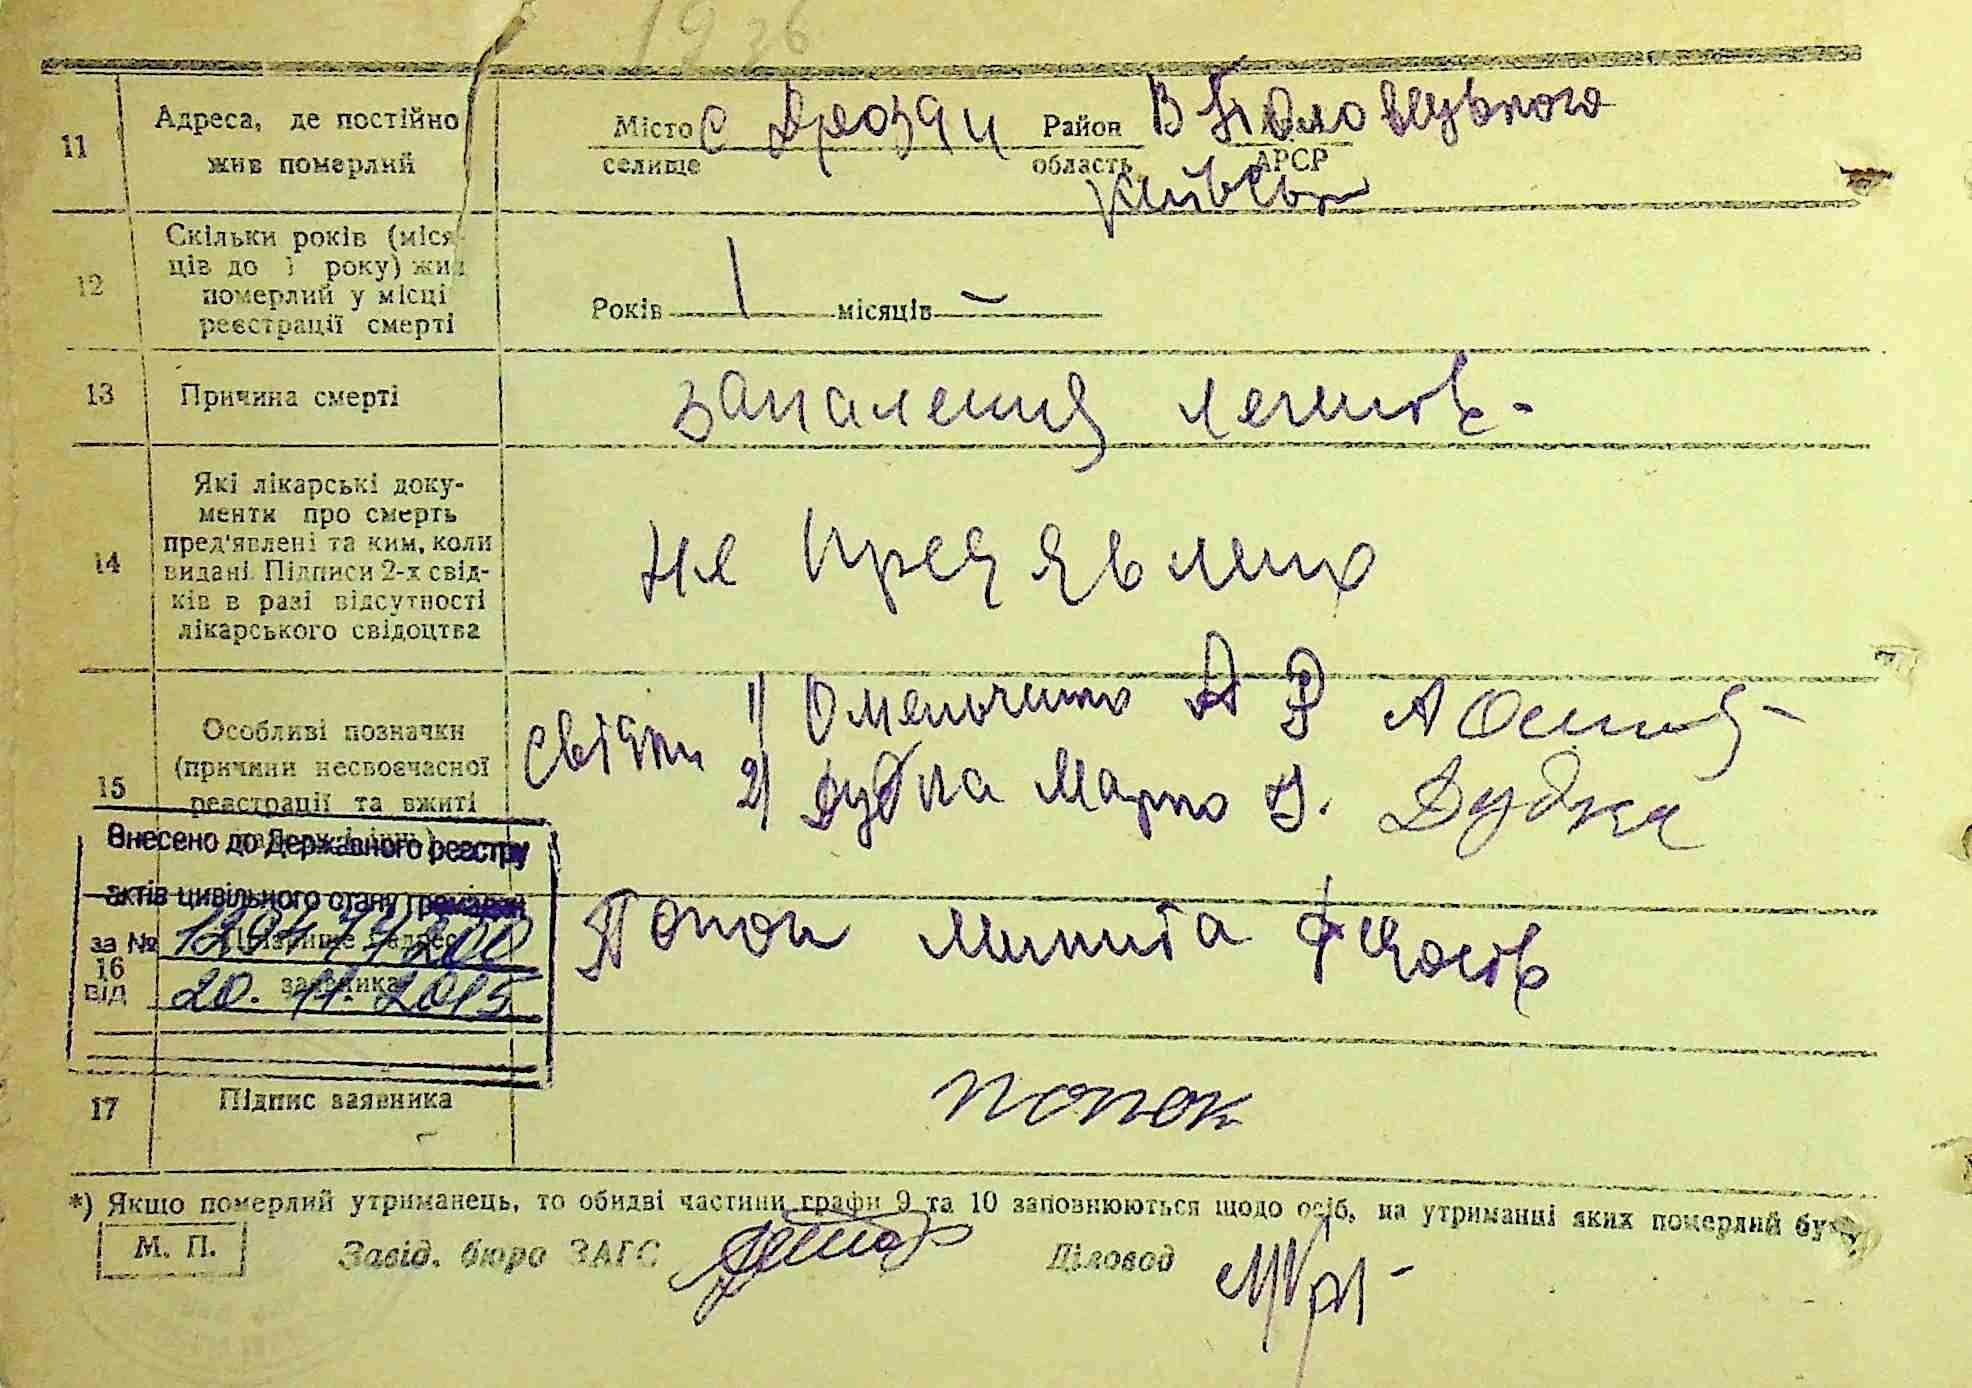 1936
11 Адреса, де постійно жив померлий
Місто селище С Дрозди Район В Половецького
область АРСР Київськ
12 Скільки років (міся-
ців до 1 року) жив
померлий у місці
реєстрації смерті
Років 1 місяців –
13 Причина смерті
запалення легенів-
14 Які лікарські доку-
менти про смерть
пред'явлені та ким, коли
видані. Підписи 2-х свід-
ків в разі відсутності
лікарського свідоцтва
не предявлено
15 Особливі позначки
(причини несвоєчасної
реєстрації та вжиті
Свідки 1) Омельченко А
2) Дудка Марко Дудка
Внесено до Державного реєстру
актів цивільного стану громадян
за №
від 20. 11. 2015
16 заявника
Попок Микита Федосів
17 Підпис заявника
попок
*) Якщо померлий утриманець, то обидві частини графи 9 та 10 заповнюються щодо осіб, на утриманні яких померлий був
М. П. Завід. бюро ЗАГС Діловод